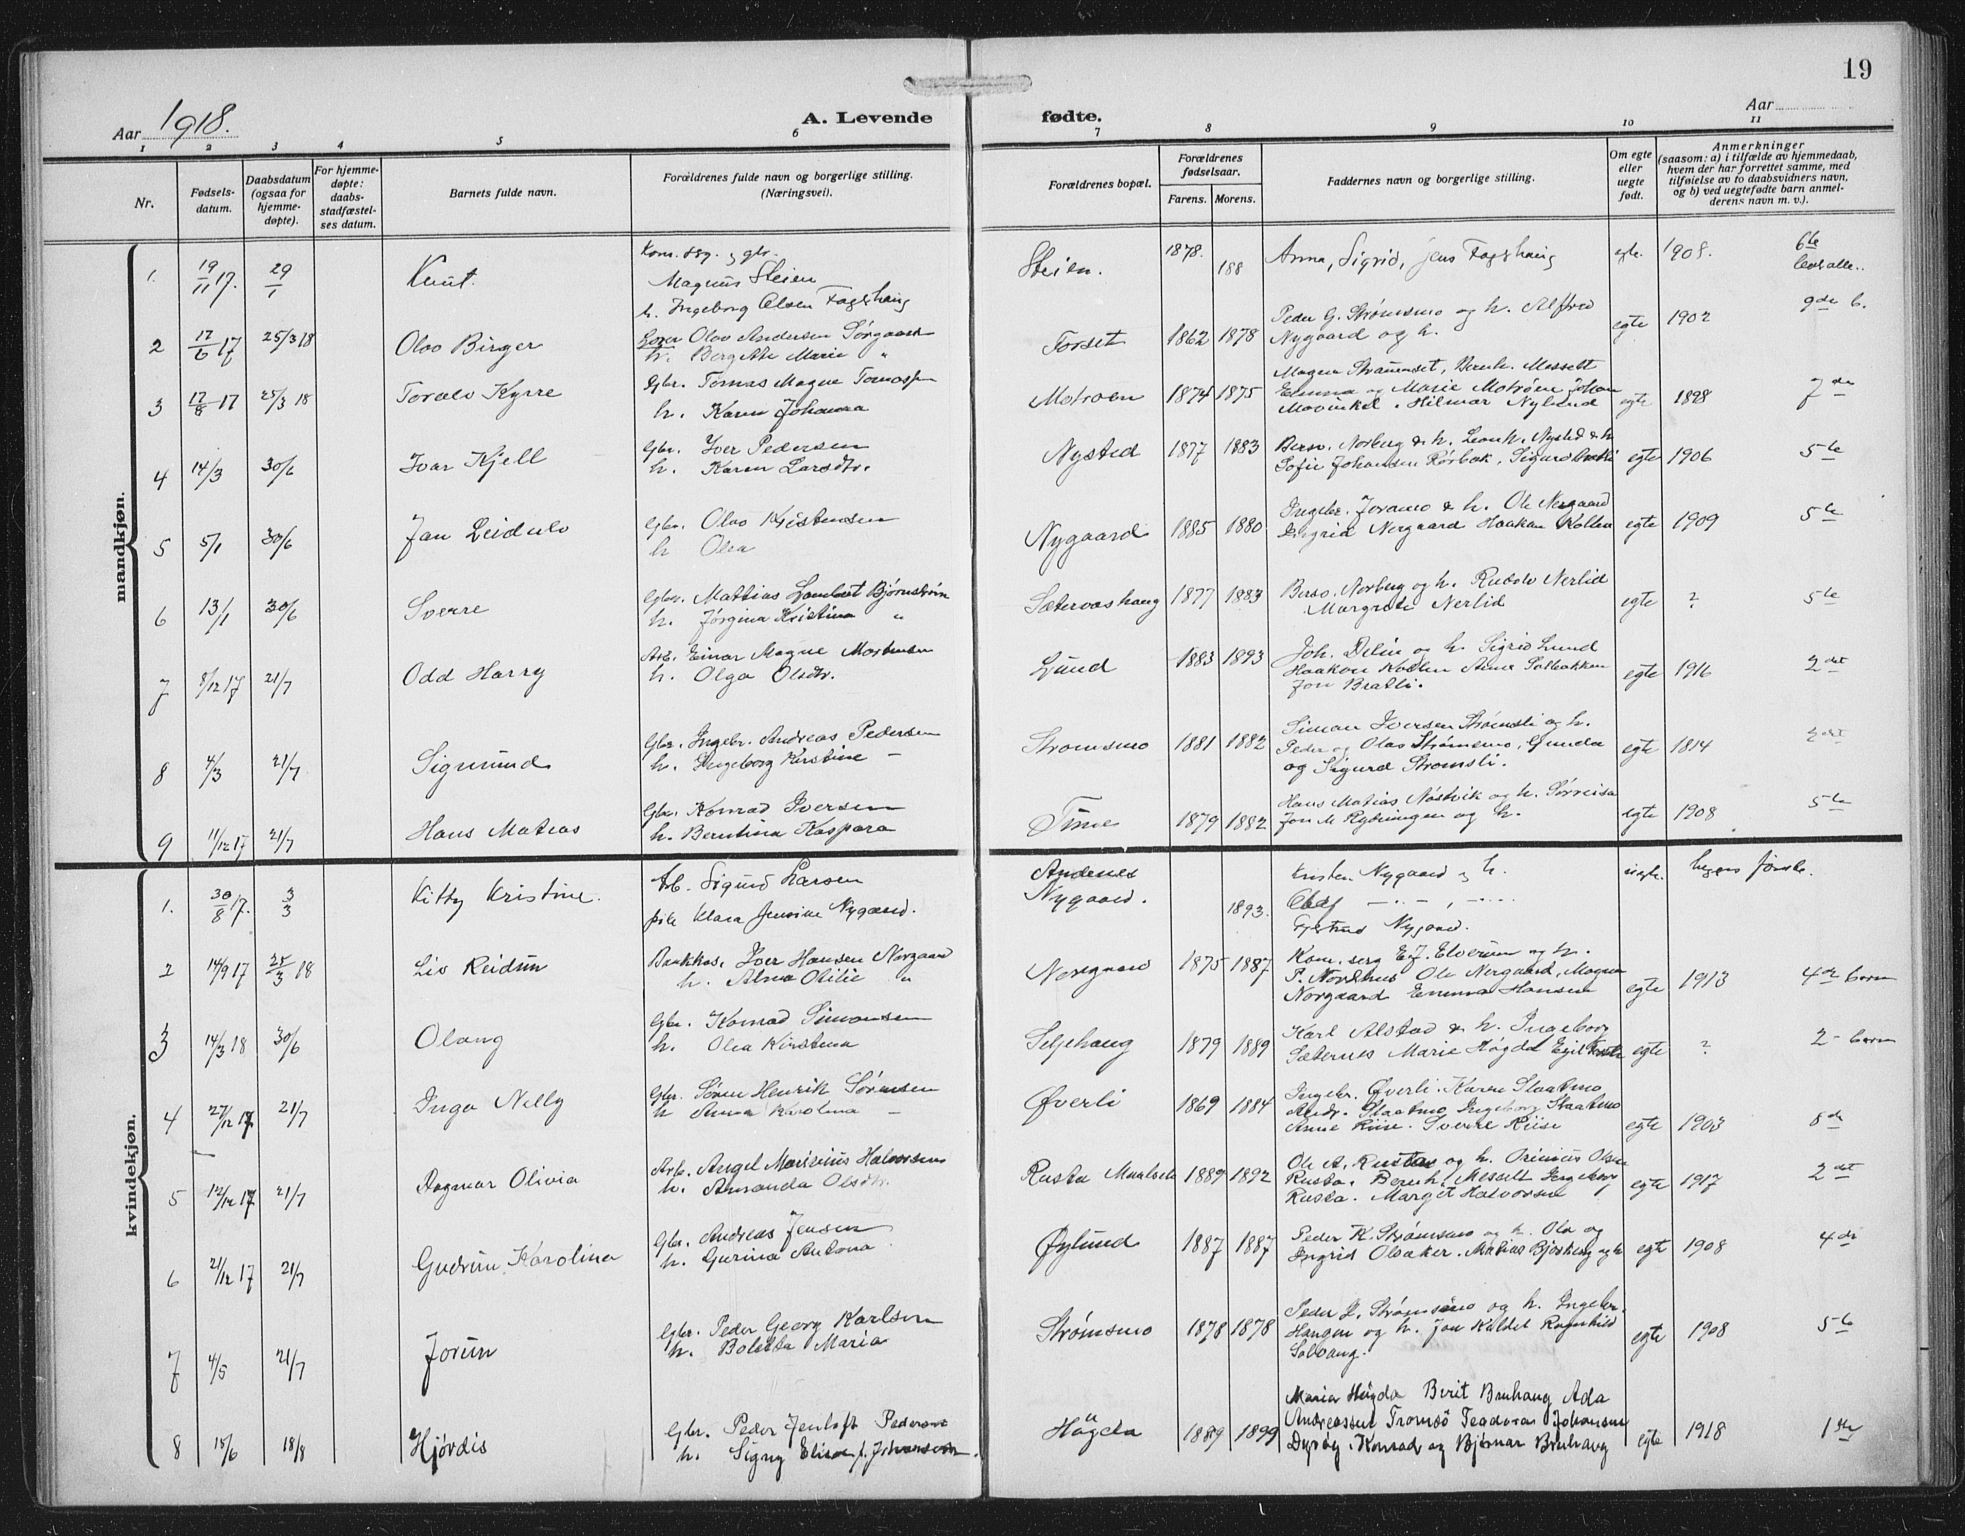 19
Aar 1918.
A. Levende fødte.
Aar
1 2 3 4 5 6 7 8 9 10 11
Nr.
Fødsels-
datum.
Daabsdatum
(ogsaa for
hjemme-
døpte).
For hjemme-
døpte:
daabs-
stadfæstel-
ses datum.
Barnets fulde navn.
Forældrenes fulde navn og borgerlige stilling.
(Næringsvei).
Forældrenes bopæl.
Forældrenes
fødselsaar.
Farens. Morens.
Faddernes navn og borgerlige stilling.
Om egte
eller
uegte
født.
Anmerkninger
(saasom: a) i tilfælde av hjemmedaab,
hvem der har forrettet samme, med
tilføielse av to daabsvidners navn,
og b) ved uegtefødte barn anmel-
derens navn m. v.).
mandkjøn.
1. 19/11 17. 29/1 Knut.
Magnus Steien
h. Ingeborg Olsen Fagshaug
Steien. 1878. 188 Anna, Sigrid, Jens Fagshaug egte. 1908. 6te
2 17/6 17 25/3 18 Olav Birger
Olav Andersen Sørgaard
h. Bergitte Marie "
Forset 1862 1878
Peder G. Strømsmo og h. Alfred
Nygaard og h.
egte 1902 9de b.
3 17/8 17 25/3 18 Toralv Kyrre
Gbr. Tomas Magne Tomassen
h. Karen Johanna
Motroen 1874 1875
Magna Straumset, Bernh. Messelt
Emma og Marie Motrøen Johan
Movinkel. Hilmar Nylund
egte 1898 7de
4 14/3 30/6 Ivar Kjell
Gbr. Iver Pedersen
h. Karen Larsdtr.
Nysted 1877 1883
Bersv. Norberg & h. Leonh. Nysted & h
Sofie Johansen Rørbak, Sigurd Bratli
egte 1906 5te
5 5/1 30/6 Jan Leidulv
Gbr. Olav Kristensen
h Olea
Nygaard 1885 1880
Ingebr. Joramo & h. Ole Nergaard
Ingrid Nergaard Haakon Kollen
egte 1909 5te
6 13/1 30/6 Sverre
Gbr. Mattias Lambert Bjørnstrøm
h. Jørgina Kristina "
Sætervashaug 1877 1883
Bersv. Norberg og h. Rudolv Nerlid
Margrete Nerlid
egte ? 5te
7 8/12 17 21/7 Odd Harry
Arb. Einar Magne Mortensen
h. Olga Olsdtr.
Lund 1883 1893
Joh. Delin og h. Sigrid Lund
Haakon Kollen Anne Solbakken
Jon Bratli.
egte 1916 2det
8 4/3 21/7 Sigmund
Gbr. Ingebr. Andreas Pedersen
h. Ingeborg Kirstine —
Strømsmo 1881 1882
Simon Iversen Strømsli og h.
Peder og Olav Strømsmo, Gunda
og Sigurd Strømsli.
egte 1814 2det
9 11/12 17 21/7 Hans Matias
Gbr. Konrad Iversen
h. Berntina Kaspara
1879 1882
Hans Matias Nøstvik og h. Sørreisa
Jon M. og h.
egte 1908 5te
kvindekjøn.
1. 30/8 17. 3/3 Kitty Kristine.
Arb. Sigurd Larsen
pike Klara Jensine Nygaard.
Andenes
Nygaard. 1893.
Kristen Nygaard og h.
Olaf —
Gjertrud Nygaard.
uegte.
2 14/9 17 25/3 18 Liv Reidun
Bankkas. Iver Hansen Norgaard
h. Alma Otilie "
Norgaard 1875 1887
Kom. serg E.J. Elverum og h.
P. Nordhus Ole Nergaard, Magna
Norgaard Emma Hansen
egte 1913 4de barn
3 14/3 18 30/6 Olaug
Gbr. Konrad Simonsen
h. Olea Kirstina
Seljehaug 1879 1889
Karl Alstad & h. Ingeborg
Sæternes Marie Høgda Egil
egte ? 2- barn
4 27/12 17 21/7 Inga Nelly
Gbr. Søren Henrik Sørensen
h Anna Karolina —
Øverli 1869 1884
Ingebr. Øverli. Karen Slaatmo
Andr. Slaatmo Ingeborg Slaatmo
Anne Riise. Sverre Riise
egte 1903 8de
5 12/12 17 21/7 Dagmar Olivia
Arb. Angel Marinius Halvorsen
h. Amanda Olsdtr.
Rusta Maalselv 1889 1892
Ole A. Rustas og h. Orinius Olsen
Rusta. Bernh. Messelt Ingeborg
Rusta. Margit Halvorsen
egte 1917 2det
6 21/12 17 21/7 Gudrun Karolina
Gbr. Andreas Jensen
h. Gurina Antona
Øylund 1887 1887
Peder K. Strømsmo og h. Ola og
Ingrid Olsaker. Matias Bjerkeng og h
egte 1908 4de
7 4/5 21/7 Jorun
Gbr. Peder Georg Karlsen
h. Boletta Maria
Strømsmo 1878 1878
Peder L. Strømsmo og h. Ingebr.
Haugen og h. Jon Kaldet Ragnhild
Solvang.
egte 1908 5te
8 15/6 18/8 Hjørdis
Gbr. Peder Jentoft Pedersen
h. Signy Elise f. Johansen.
Høgda 1889 1899
Maria Høgda Berit Bruhaug Ada
Andreassen Tromsø Teodora Johansen
Dyrøy. Konrad og Bjørnar Bruhaug
egte 1918 1ste